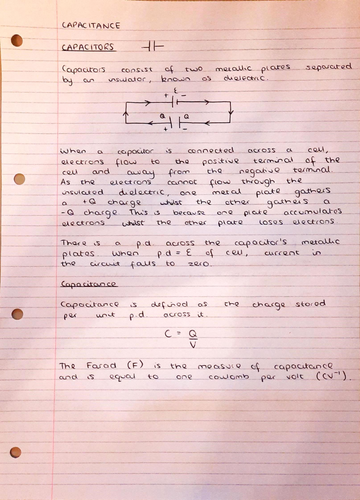 CAPACITANCE
CAPACITORS
Capacitors consist of two metallic plates separated
by an insulator, known as dielectric.
ε
+ -
Q Q
+ -
When a capacitor is connected across a cell,
electrons flow to the positive terminal of the
cell and away from the negative terminal.
As the electrons cannot flow through the
insulated dielectric, one metal plate gathers
a +Q charge whilst the other gathers a
-Q charge This is because one plate accumulates
electrons whilst the other plate loses electrons
There is a p.d. across the capacitor's metallic
plates when p.d = ε of cell, current in
the circuit falls to zero.
Capacitance
Capacitance is defined as the charge stored
per unit p.d across it.
C = Q
V
The Farad (F) is the measure of capacitance
and is equal to one coulomb per volt (CV⁻¹)